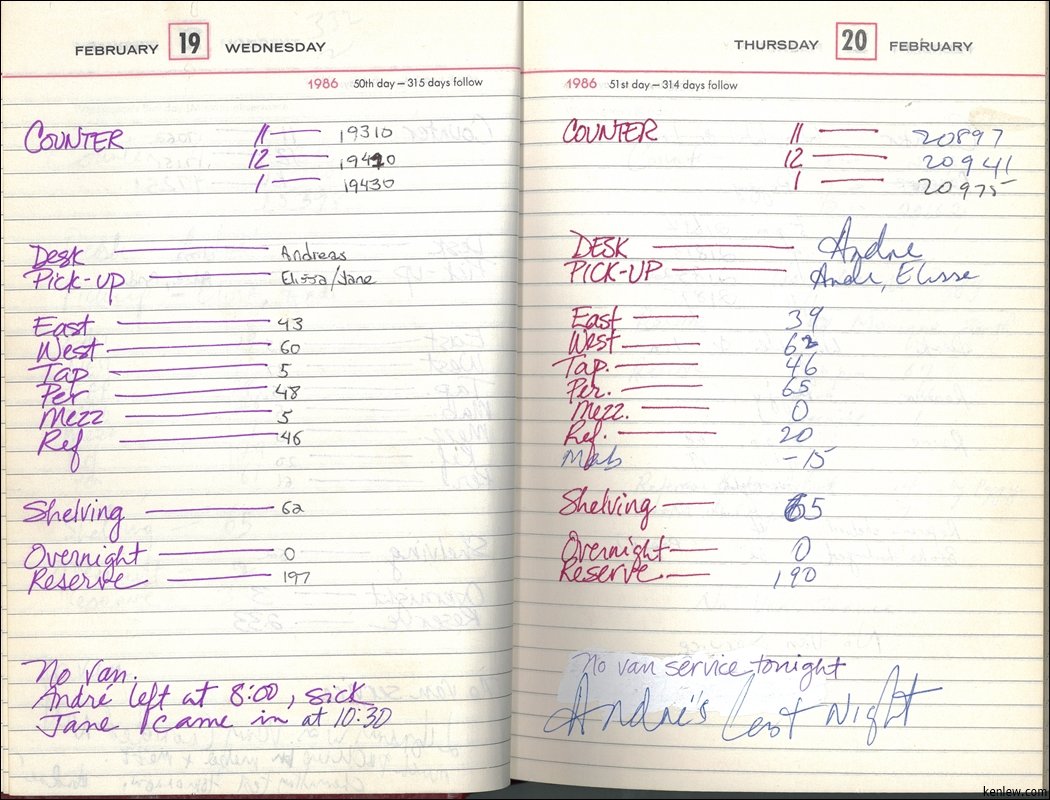 FEBRUARY 19 WEDNESDAY
1986 50th day—315 days follow
COUNTER 11 — 19310
12 — 19420
1 — 19430
Desk — Andreas
Pick-up — Elissa/Jane
East — 43
West — 60
Tap — 5
Per — 48
Mezz — 5
Ref — 46
Shelving — 62
Overnight — 0
Reserve — 197
No van.
André left at 8:00, sick
Jane came in at 10:30
THURSDAY 20 FEBRUARY
1986 51st day—314 days follow
COUNTER 11 — 20897
12 — 20941
1 — 20975
DESK — Andre
PICK-UP — Andre, Elissa
East — 39
West — 62
Tap. — 46
Per. — 65
Mezz. — 0
Ref. — 20
Mab -15
Shelving — 65
Overnight — 0
Reserve — 190
No van service tonight
André's Last Night
kenlew.com